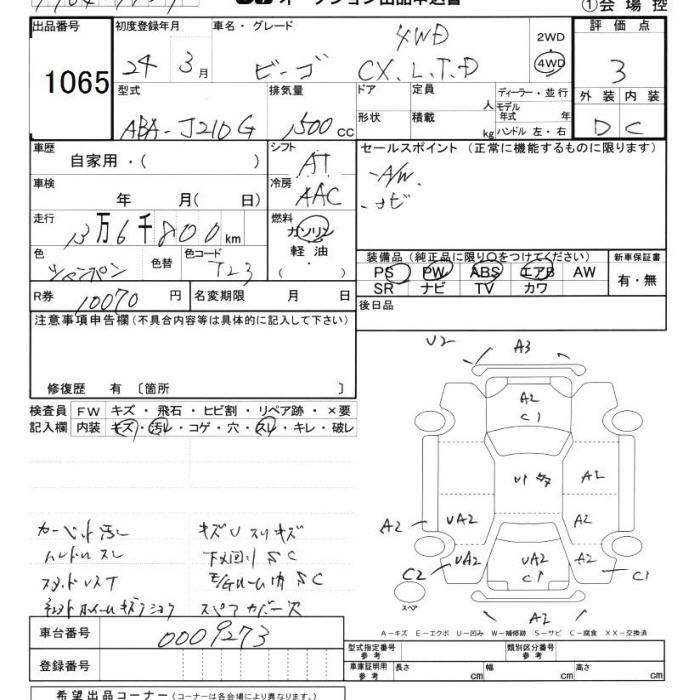 オークション出品申込書
①会場控
出品番号 初度登録年月 車名・グレード 2WD 評価点
1065 24年 3月 ビーゴ 4WD CX.L.T.D 4WD 3
型式 排気量 ドア 定員 人 ディーラー・並行 外装 内装
ABA-J210G 1500cc 形状 積載 kg モデル年式 年 ハンドル 左・右 D C
車歴 自家用・( ) シフト AT セールスポイント(正常に機能するものに限ります)
車検 年 月( 日) 冷房 AAC A/W.
ナビ
走行 13万6千800km 燃料 ガソリン 軽油 ・( )
色 シャンペン 色替 色コード T23
装備品(純正品に限り○をつけてください) 新車保証書
PS PW ABS エアB AW 有・無
SR ナビ TV カワ
R券 10070円 名変期限 月 日 後日品
注意事項申告欄(不具合内容等は具体的に記入して下さい)
修復歴 有〔箇所 〕
検査員 FW キズ・飛石・ヒビ割・リペア跡・×要
記入欄 内装 キズ・汚レ・コゲ・穴・スレ・キレ・破レ
U2 A3
A2
C1
A2
A2 UA2 A2
C2 UA2 UA2 A2 C1
C1
A2
スペア
カーペット汚レ キズUスリキズ
ハンドルスレ 下メ回リSC
E/Gルーム内SC
スペアカバー欠
A-キズ E-エクボ U-凹み W-補修跡 S-サビ C-腐食 XX-交換済
車台番号 0009273
型式指定番号 参考 類別区分番号 参考
登録番号
車庫証明用 参考 長さ cm 幅 cm 高さ cm
希望出品コーナー(コーナーは各会場により異なります。)